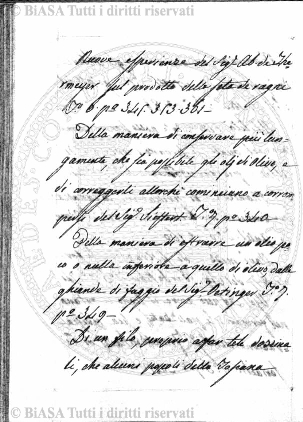 © BiASA Tutti i diritti riservati
Nuove esperienze del Sig.r Ab. de Ter
meyer sul prodotto della seta de ragni
T.o 6 p.o 345. 353. 361 -
Della maniera di conservare più lun-
gamente, che sia possibile gli olj di olive, e
di correggerli allorchè cominciano a corrom
persi del Sig.r Sieffert T. 7. p.o 340
Della maniera di estrarre un olio po
co o nulla inferiore a quello di olive dalle
ghiande di faggio del Sig.r Oetinger T.o 7.
p.o 349 -
Di un filo proprio a far tele dozzina
li, che alcuni popoli della Toscana
© BiASA Tutti i diritti riservati